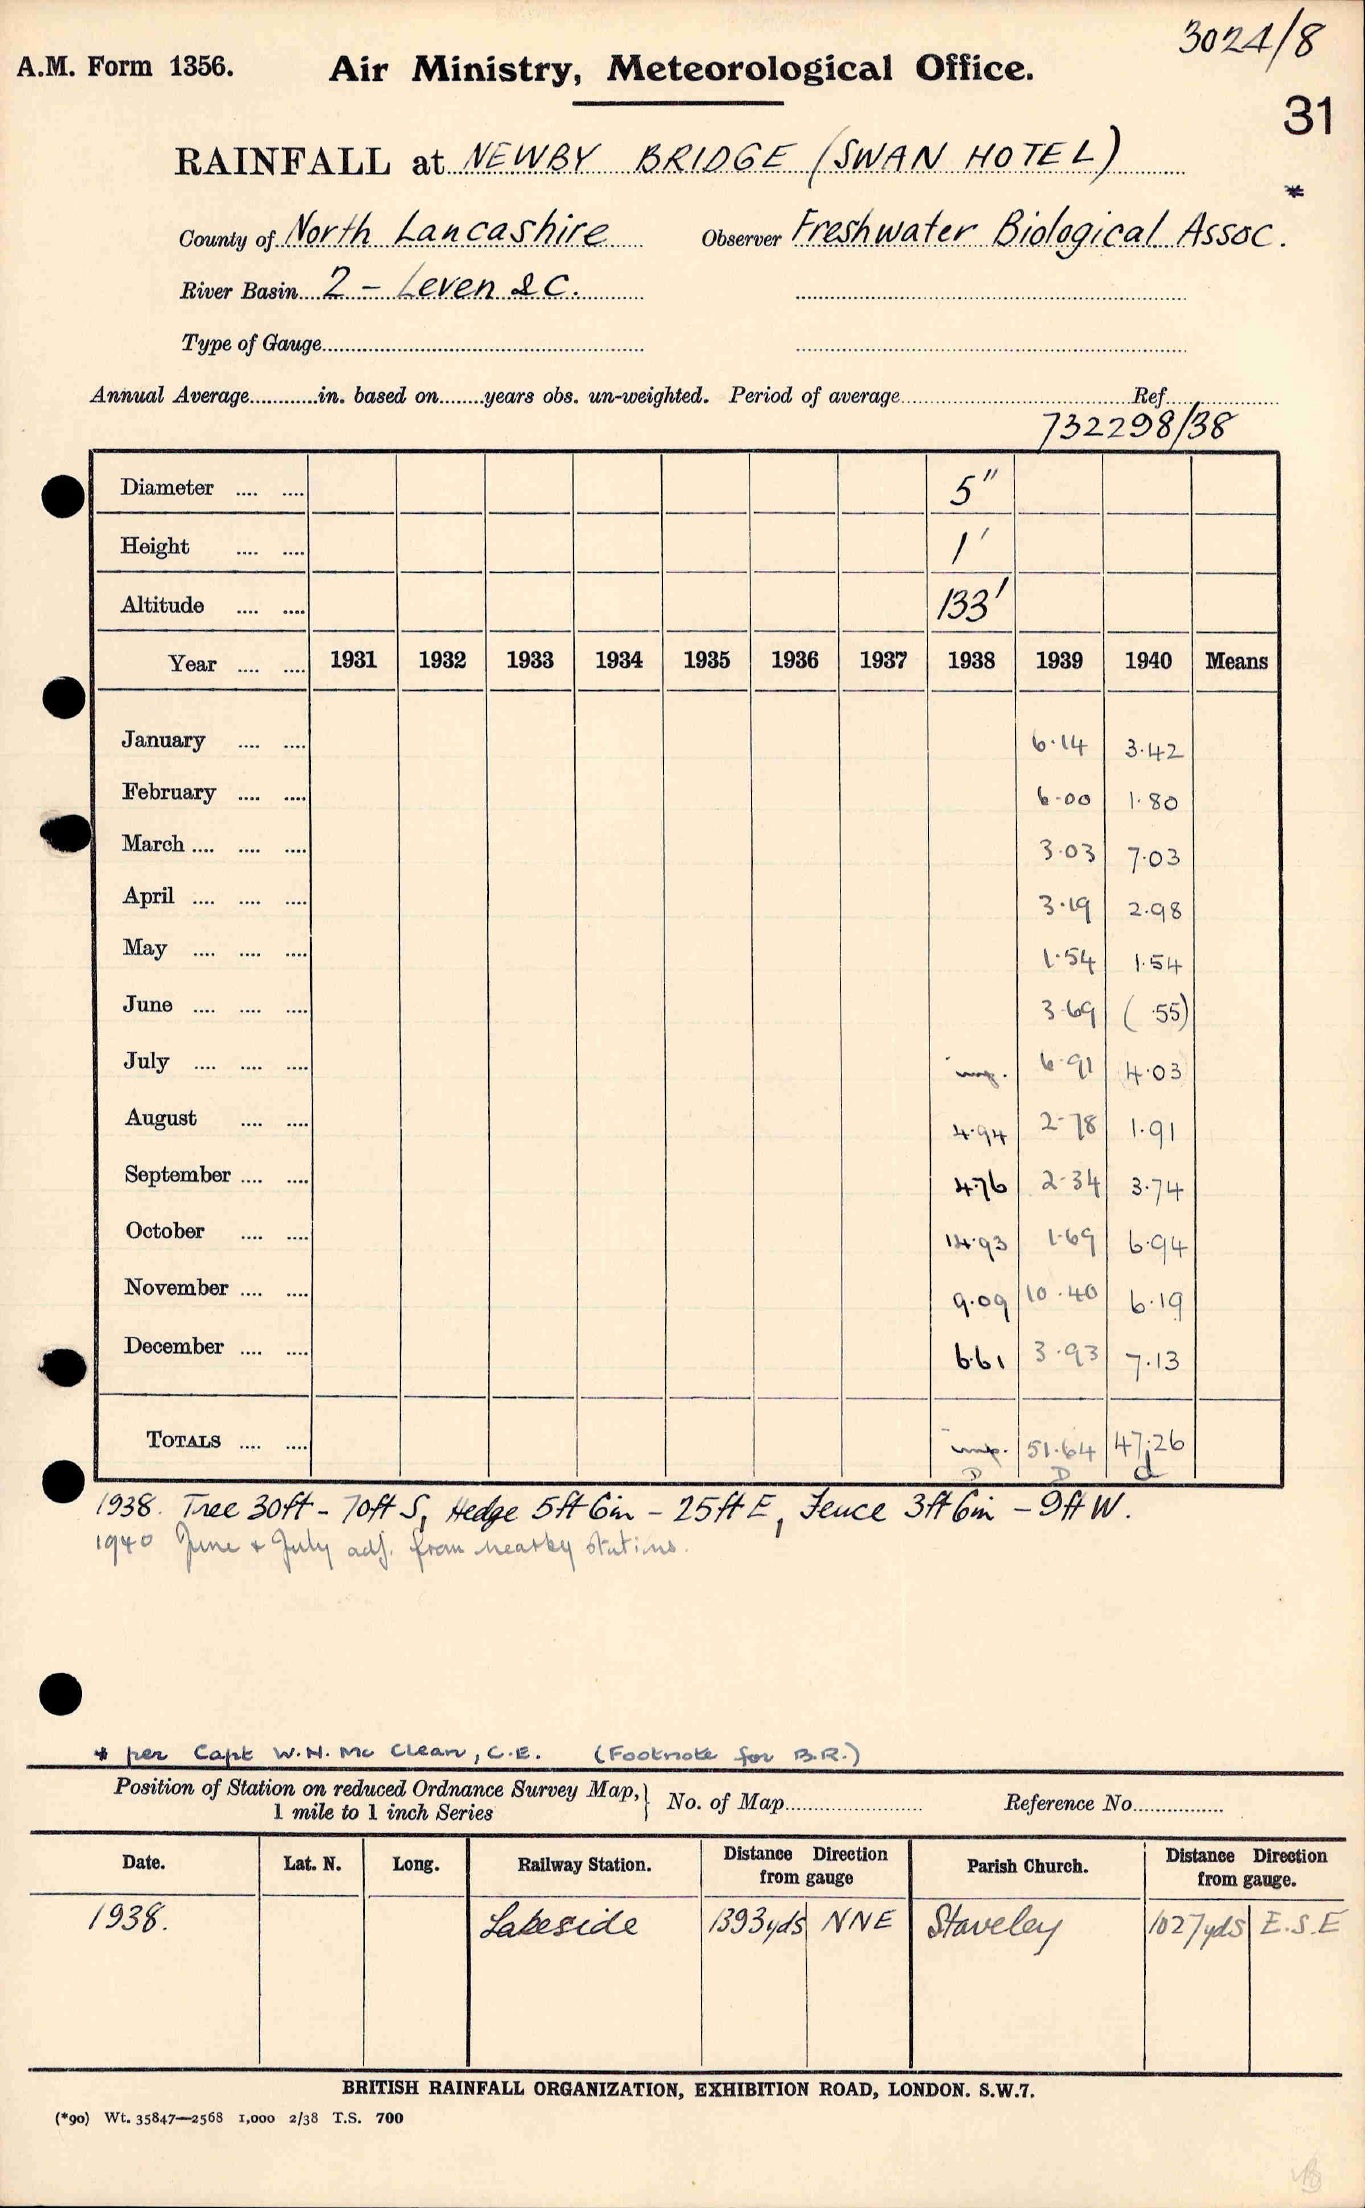 3024/8
A.M. Form 1356. Air Ministry, Meteorological Office.
31
RAINFALL at NEWBY BRIDGE (SWAN HOTEL)
*
County of North Lancashire Observer Freshwater Biological Assoc.
River Basin 2 - Leven &c.
Type of Gauge
Annual Average in. based on years obs. un-weighted. Period of average Ref
732298/38
Diameter .... .... 5"
Height .... .... 1'
Altitude .... .... 133'
Year .... .... 1931 1932 1933 1934 1935 1936 1937 1938 1939 1940 Means
January .... .... 6.14 3.42
February .... .... 6.00 1.80
March .... .... .... 3.03 7.03
April .... .... .... 3.19 2.98
May .... .... .... 1.54 1.54
June .... .... .... 3.69 ( .55)
July .... .... .... imp. 6.91 4.03
August .... .... 4.94 2.78 1.91
September .... .... 4.76 2.34 3.74
October .... .... 14.93 1.69 6.94
November .... .... 9.09 10.40 6.19
December .... .... 6.61 3.93 7.13
TOTALS .... .... imp. 51.64 47.26
D D d
1938. Tree 30ft - 70ft S, Hedge 5ft 6in - 25ft E, Fence 3ft 6in - 9ft W.
1940 June & July adj. from nearby stations.
* per Capt W.N. Mc Clean, C.E. (Footnote for B.R.)
Position of Station on reduced Ordnance Survey Map, 1 mile to 1 inch Series } No. of Map Reference No
Date. Lat. N. Long. Railway Station. Distance Direction from gauge Parish Church. Distance Direction from gauge.
1938. Lakeside 1393yds NNE Staveley 1027yds E.S.E
BRITISH RAINFALL ORGANIZATION, EXHIBITION ROAD, LONDON. S.W.7.
(*90) Wt. 35847—2568 1,000 2/38 T.S. 700